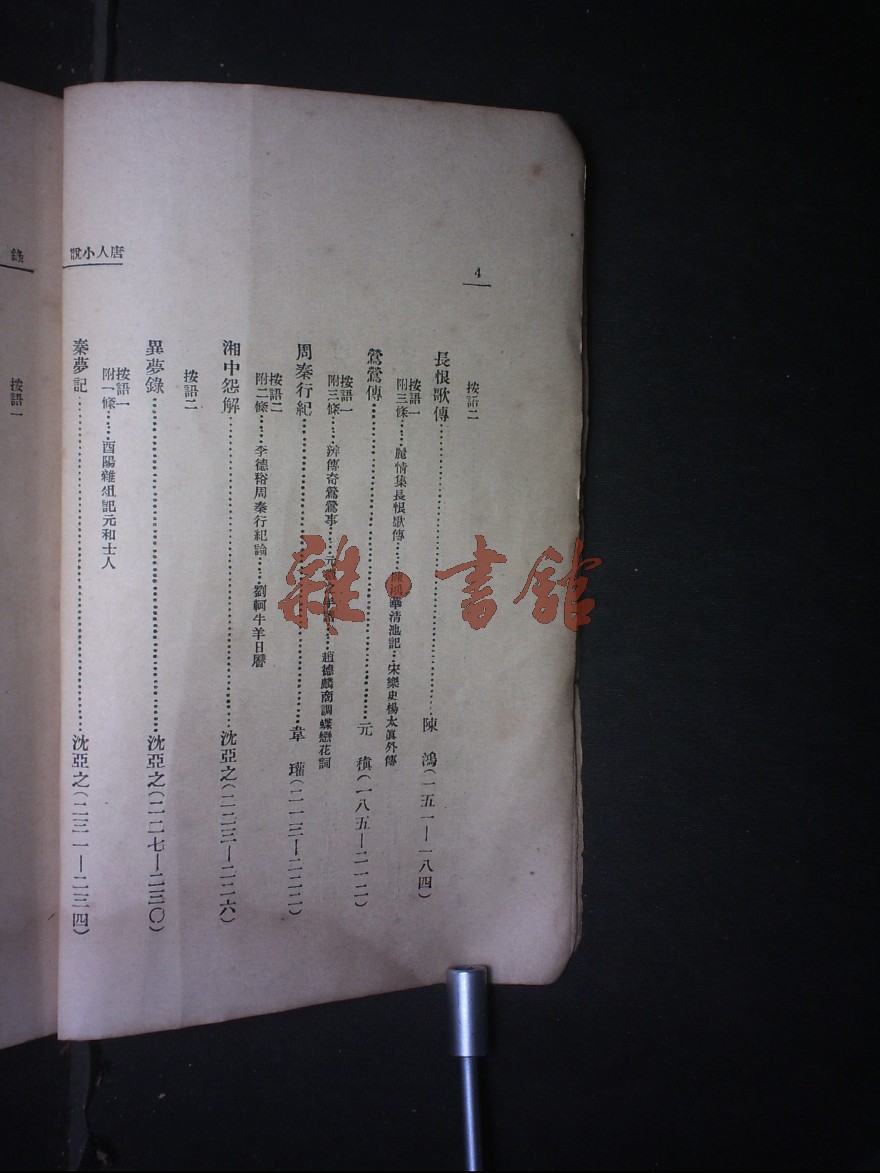 4
唐人小說
按語二
長恨歌傳……陳　鴻(一五一—一八四)
按語一
附三條……麗情集長恨歌傳……陳鴻華清池記…宋樂史楊太眞外傳
鶯鶯傳……元　稹(一八五—二一二)
按語一
附三條……辨傳奇鶯鶯事……元……趙德麟商調蝶戀花詞
周秦行紀……韋　瓘(二一三—二二二)
按語二
附二條……李德裕周秦行紀論……劉軻牛羊日曆
湘中怨解……沈亞之(二二三—二二六)
按語二
異夢錄……沈亞之(二二七—二三〇)
按語一
附一條……酉陽雜俎記元和士人
秦夢記……沈亞之(二三一—二三四)
錄
按語一
雜·書館